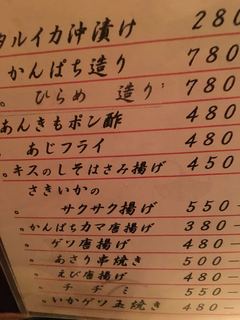 タルイカ沖漬け 280
かんぱち造り 780
ひらめ 造り 780
あんきもポン酢 480
あじフライ 480
キスのしそはさみ揚げ 450
さきいかの
サクサク揚げ 550-
かんぱちカマ唐揚げ 380-
ゲソ唐揚げ 480-
あさり串焼き 500
えび唐揚げ 480-
チヂミ 550-
いかゲソ玉焼き 480-